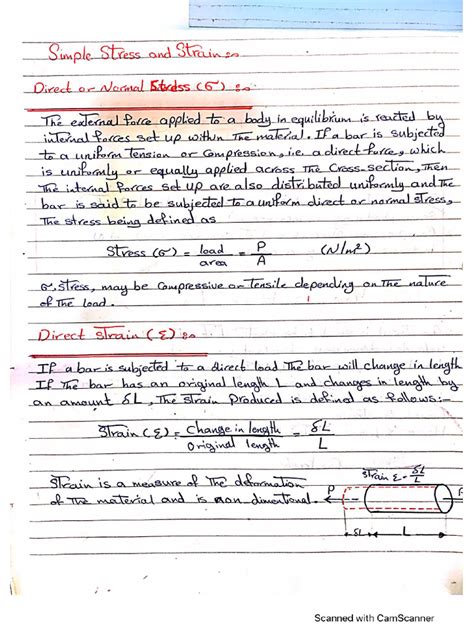 Simple Stress and Strain :-
Direct or Normal Stress (σ) :-
The external force applied to a body in equilibrium is reacted by
internal forces set up within the material. If a bar is subjected
to a uniform tension or compression, i.e. a direct force, which
is uniformly or equally applied across the cross-section, then
the internal forces set up are also distributed uniformly and the
bar is said to be subjected to a uniform direct or normal stress,
the stress being defined as
Stress (σ) = load / area = P / A (N/m²)
σ. stress, may be compressive or tensile depending on the nature
of the load.
Direct strain (ε) :-
If a bar is subjected to a direct load the bar will change in length
If the bar has an original length L and changes in length by
an amount δL, the strain produced is defined as follows:-
Strain (ε) = Change in length / Original length = δL / L
Strain is a measure of the deformation
of the material and is non dimentional.
strain ε = δL / L
P
P
δL L
Scanned with CamScanner